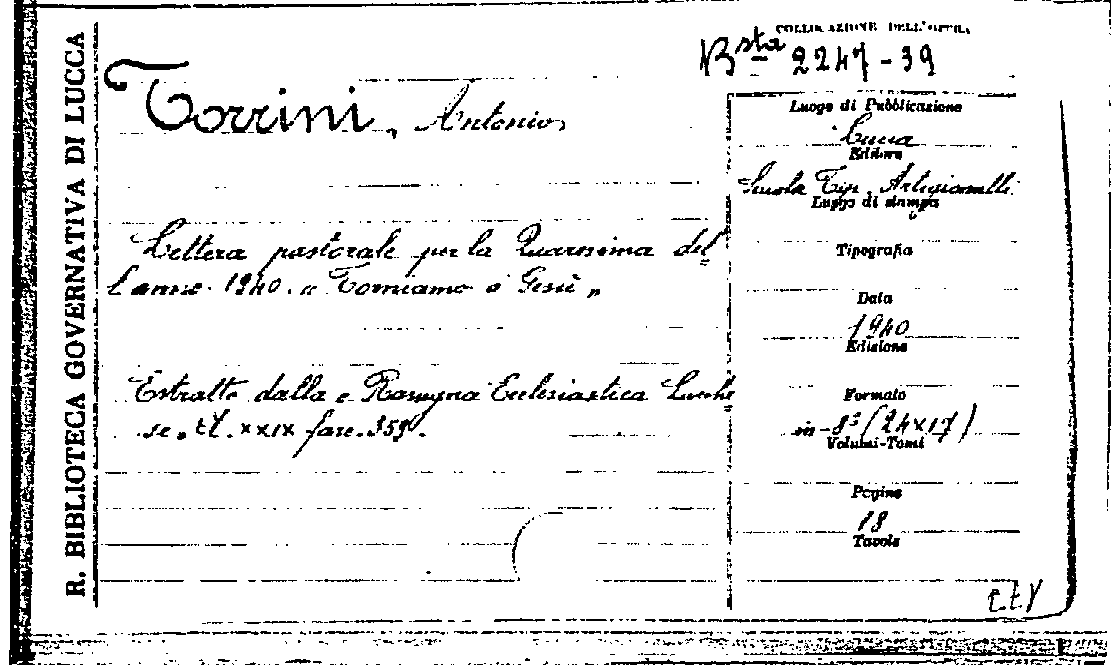 R. BIBLIOTECA GOVERNATIVA DI LUCCA
COLLOCAZIONE DELL'OPERA
Bsta 2247-39
Torrini, Antonio
Lettera pastorale per la Quaresima del=
l'anno 1940. « Torniamo a Gesù »
Estratto dalla « Rassegna Ecclesiastica Lucche=
se. A. XXIX fasc. 359.
Luogo di Pubblicazione
Lucca
Editore
Scuola Tip. Artigianelli
Luogo di stampa
Tipografia
Data
1940
Edizione
Formato
in-8° (24x17)
Volumi-Tomi
Pagine
18
Tavole